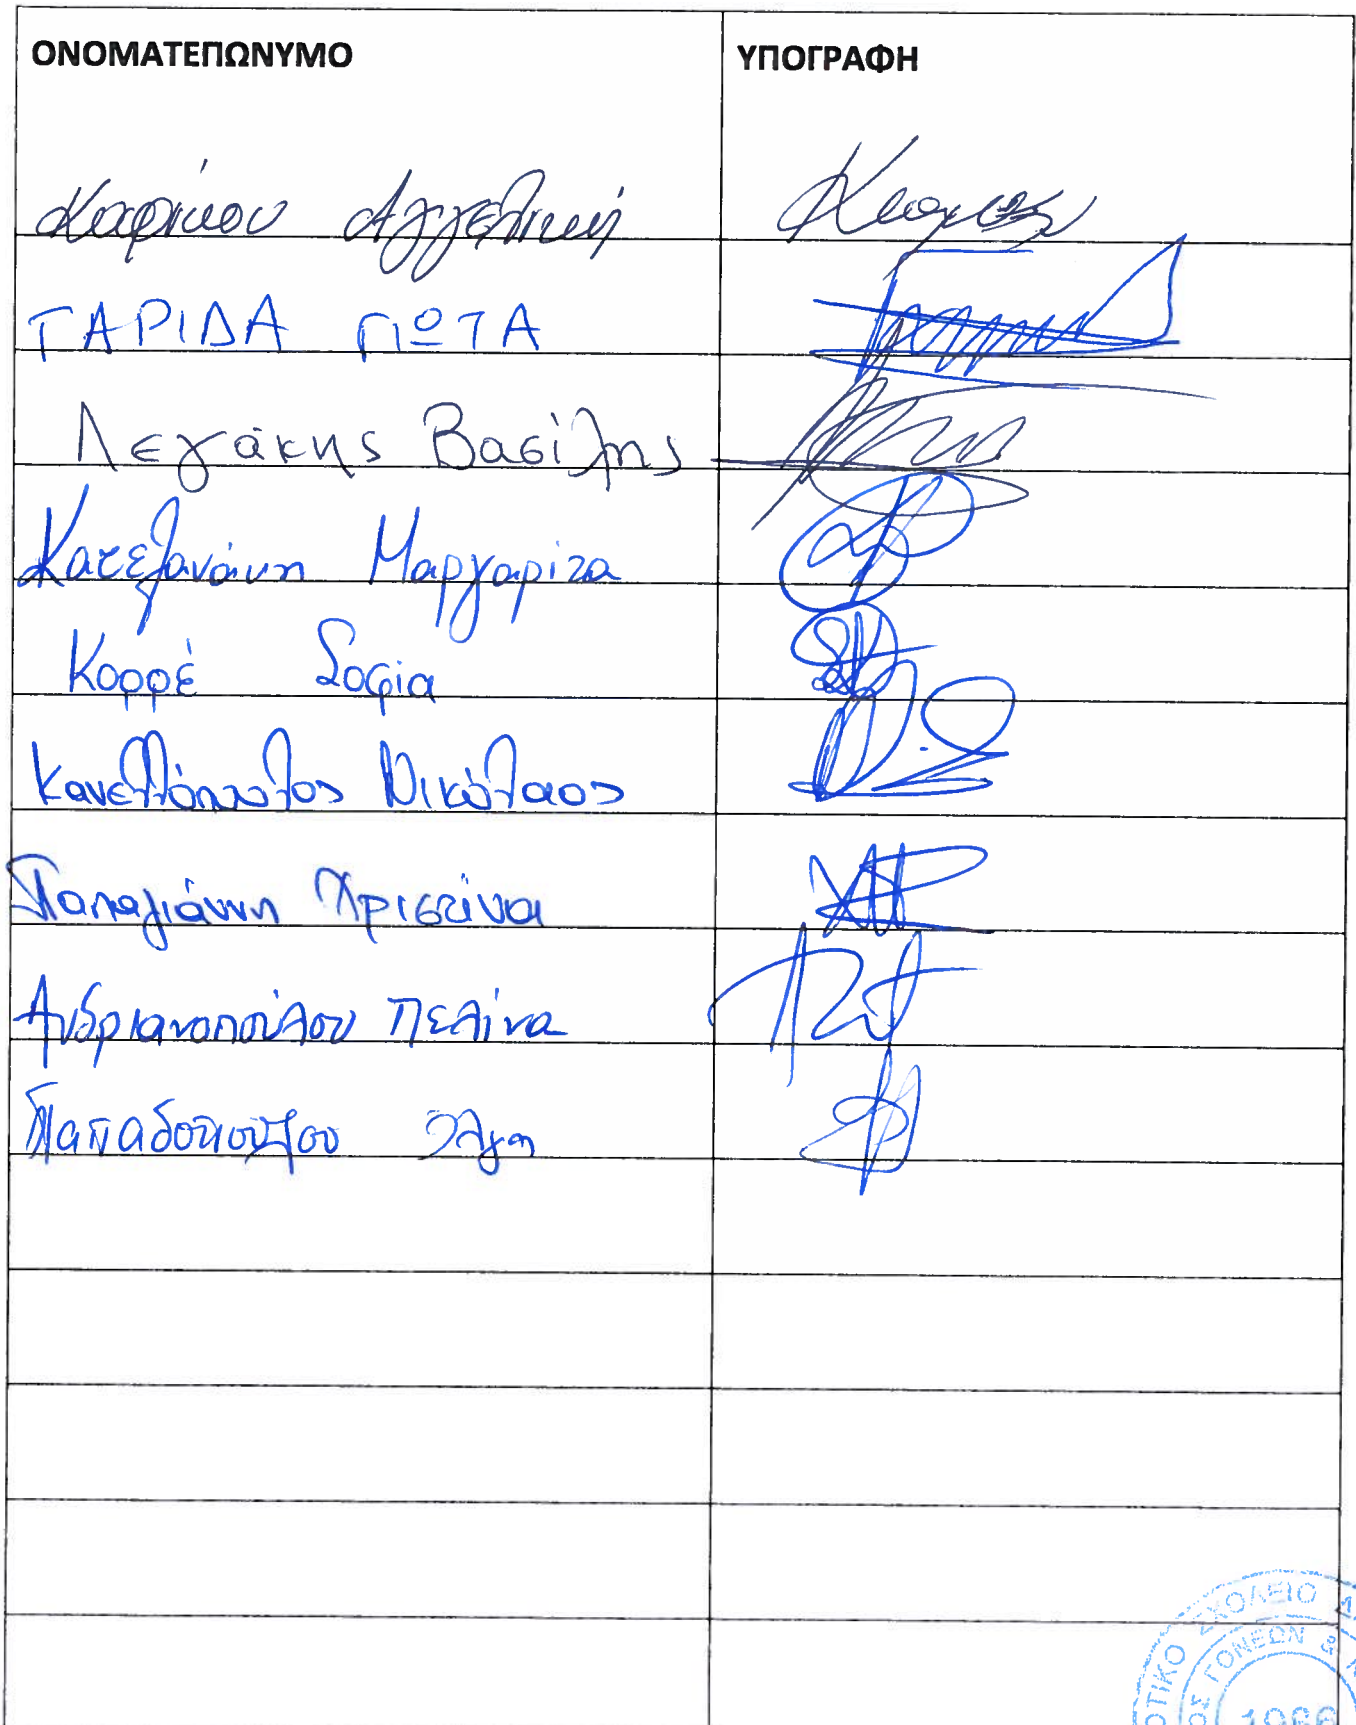 ΟΝΟΜΑΤΕΠΩΝΥΜΟ ΥΠΟΓΡΑΦΗ
Αγγελική
ΓΑΡΙΔΑ ΓΙΩΤΑ
Λεγάκης Βασίλης
Κατεζανάκη Μαργαρίτα
Κορρέ Σοφία
Κανελλόπουλος Νικόλαος
Παπαγιάννη Χριστίνα
Ανδριανοπούλου Πελίνα
Παπαδοπούλου Όλγα
ΣΧΟΛΕΙΟ
ΓΟΝΕΩΝ &
1986